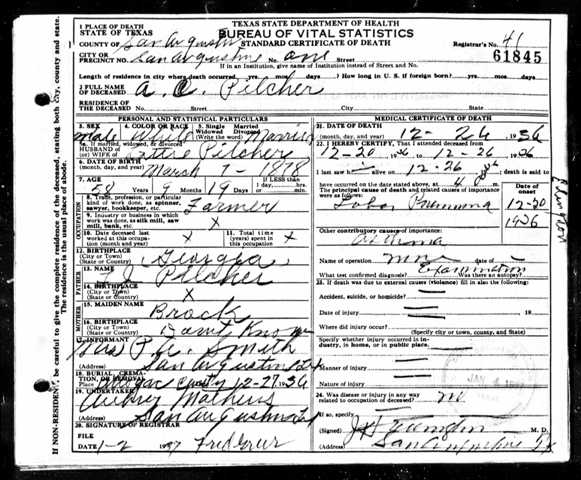 TEXAS STATE DEPARTMENT OF HEALTH
BUREAU OF VITAL STATISTICS
STANDARD CERTIFICATE OF DEATH
1 PLACE OF DEATH
STATE OF TEXAS
COUNTY OF San Augustine
Registrar's No. 41
CITY OR PRECINCT NO. San Augustine No. one
61845
If in an Institution, give name of Institution instead of Street and No.
Length of residence in city where death occurred yrs. mos. days. How long in U. S. if foreign born? yrs. mos. days.
2 FULL NAME OF DECEASED A. C. Pilcher
RESIDENCE OF THE DECEASED Street and No. City State
PERSONAL AND STATISTICAL PARTICULARS
MEDICAL CERTIFICATE OF DEATH
3. SEX 4. COLOR OR RACE 5. Single Married Widowed Divorced
male White Married
5a. If married, widowed, or divorced
HUSBAND OF (or) WIFE OF Pilcher
6. DATE OF BIRTH (month, day, year) March 7- 1878
7. AGE Years Months Days If LESS than 1 day
58 9 19 hrs. min.
OCCUPATION
8. Trade, profession, or particular kind of work done, as spinner, sawyer, bookkeeper, etc. Farmer
9. Industry or business in which work was done, as silk mill, saw mill, bank, etc. X
10. Date deceased last worked at this occupation (month and year) X
11. Total time (years) spent in this occupation X
12. BIRTHPLACE (City or Town) (State or Country) Georgia
FATHER
13. NAME Pilcher
14. BIRTHPLACE (City or Town) (State or Country) X
MOTHER
15. MAIDEN NAME Brock
16. BIRTHPLACE (City or Town) (State or Country) Dont Know
17. INFORMANT Mrs P. A. Smith
San Augustine Tex
18. BURIAL, CREMATION, OR REMOVAL 12-27-36
19. UNDERTAKER Mathews
San Augustine Tex
20. SIGNATURE OF REGISTRAR
FILE DATE 1-2 1937
21. DATE OF DEATH (month, day, year) 12- 26 1936
22. I HEREBY CERTIFY, That I attended deceased from
12-20 1936 to 12-26 1936
I last saw h alive on 12-26 death is said to
have occurred on the date stated above, at 4
The principal cause of death and related causes of importance were as follows:
Date of onset
Lobar Pneumonia 12-20
1936
Other contributory causes of importance:
Asthma
Name of operation none
What test confirmed diagnosis? Examination Was there an autopsy?
23. If death was due to external causes (violence) fill in also the following:
Accident, suicide, or homicide?
Date of injury 19
Where did injury occur?
(Specify city or town, county, and State)
Specify whether injury occurred in industry, in home, or in public place.
Manner of injury
Nature of injury
24. Was disease or injury in any way related to occupation of deceased? no
If so, specify
(Signed) M. D.
San Augustine Tx